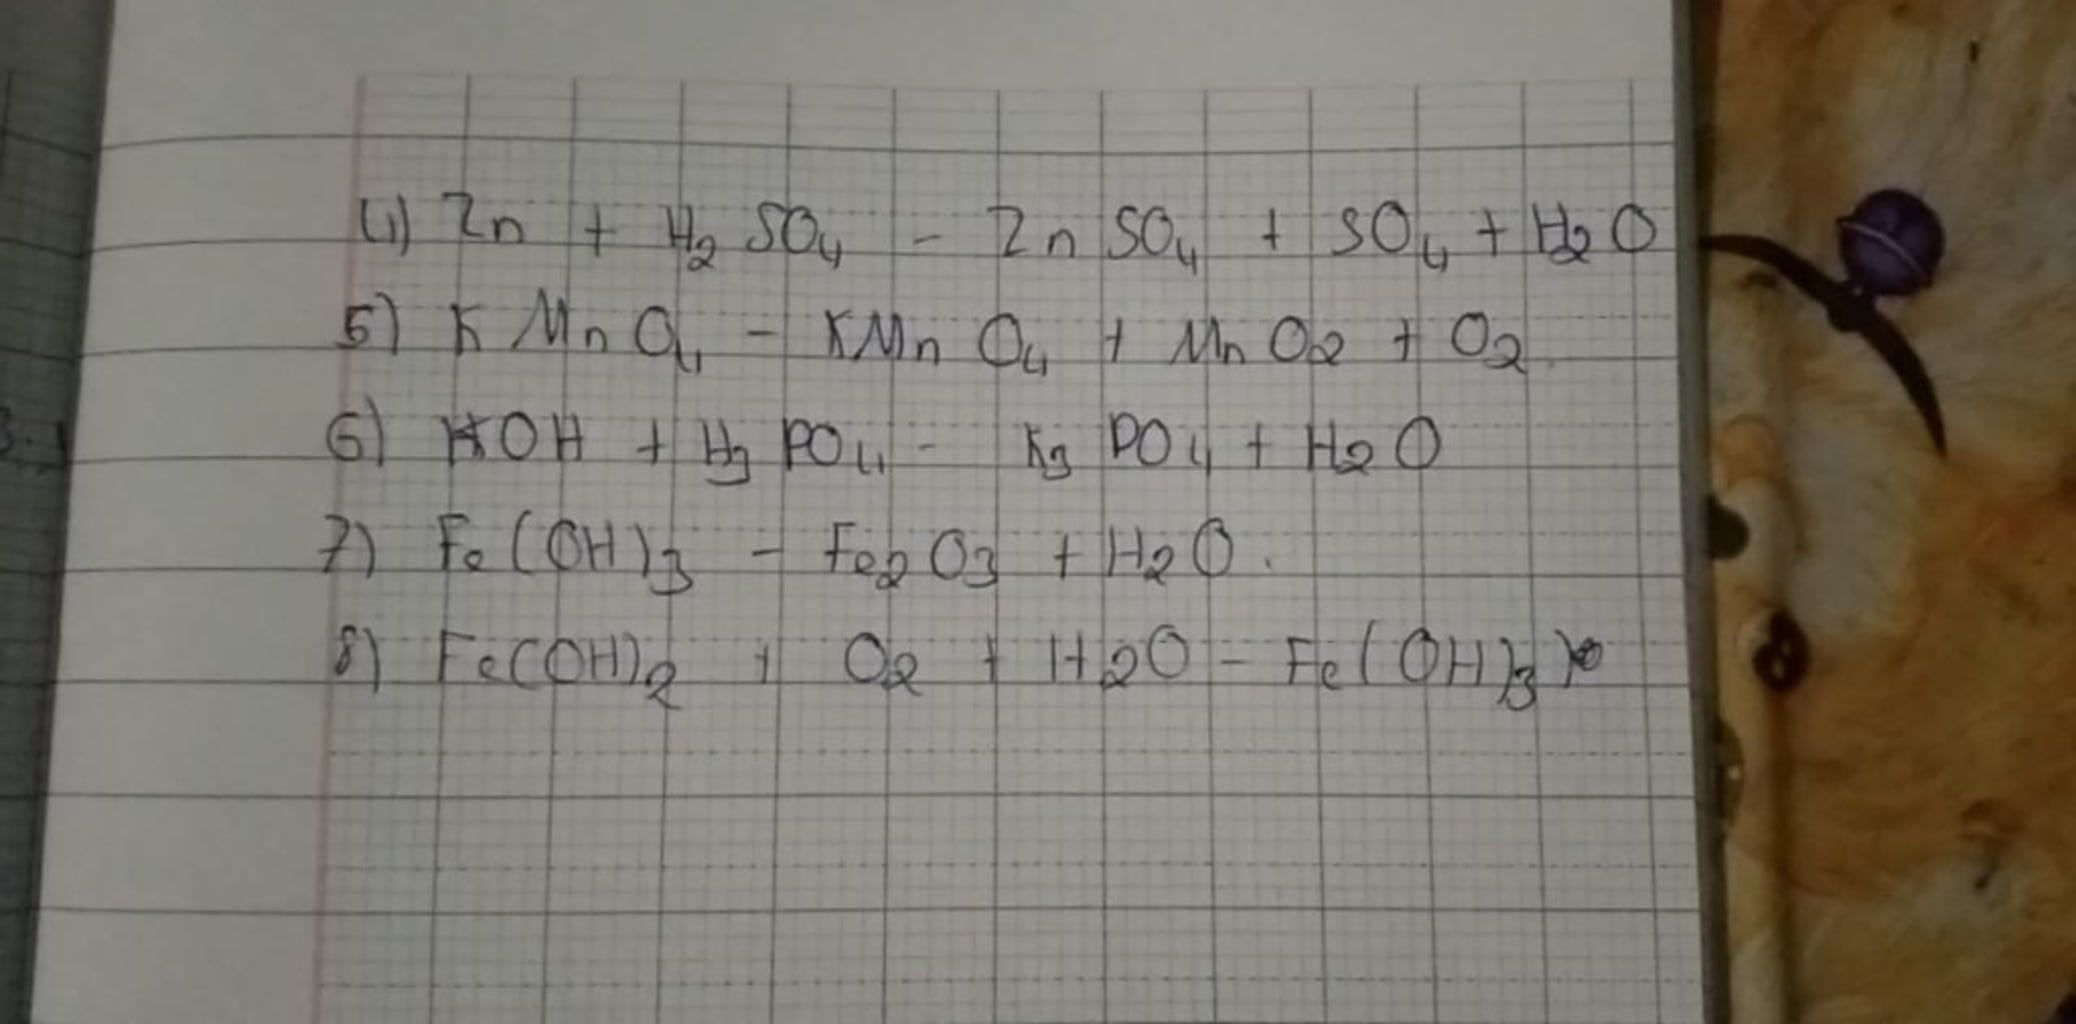 4) Zn + H2 SO4 - Zn SO4 + SO4 + H2O
5) K Mn O4 - KMn O4 + Mn O2 + O2
6) KOH + H3 PO4 - K3 PO4 + H2O
7) Fe(OH)3 - Fe2 O3 + H2O.
8) Fe(OH)2 + O2 + H2O - Fe(OH)3